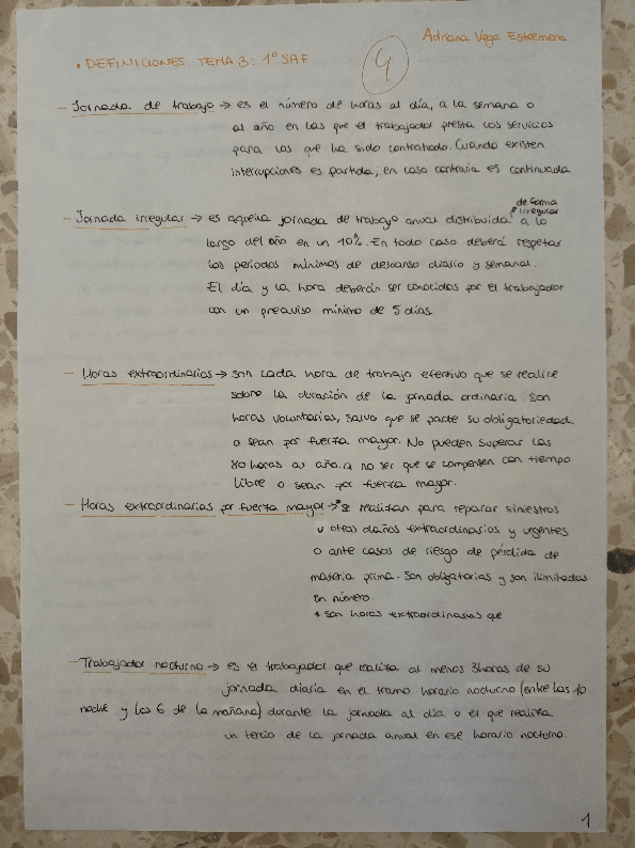 Adriana Vega Estremera
• DEFINICIONES TEMA 3: 1º SAF
4
- Jornada de trabajo → es el número de horas al día, a la semana o
al año en las que el trabajador presta los servicios
para los que ha sido contratado. Cuando existen
interrupciones es partida; en caso contrario es continuada
de forma
irregular
- Jornada irregular → es aquella jornada de trabajo anual distribuida a lo
largo del año en un 10%. En todo caso deberá respetar
los periodos mínimos de descanso diario y semanal.
El día y la hora deberán ser conocidos por el trabajador
con un preaviso mínimo de 5 días.
- Horas extraordinarias → son cada hora de trabajo efectivo que se realice
sobre la duración de la jornada ordinaria. Son
horas voluntarias, salvo que se pacte su obligatoriedad.
o sean por fuerza mayor. No pueden superar las
80 horas al año. a no ser que se compensen con tiempo
libre o sean por fuerza mayor.
- Horas extraordinarias por fuerza mayor →* se realizan para reparar siniestros
u otros daños extraordinarios y urgentes
o ante casos de riesgo de pérdida de
materia prima. Son obligatorias y son ilimitadas
en número.
* son horas extraordinarias que
- Trabajador nocturno → es el trabajador que realiza al menos 3horas de su
jornada diaria en el tramo horario nocturno (entre las 10
noche y las 6 de la mañana) durante la jornada al día o el que realiza
un tercio de la jornada anual en ese horario nocturno.
1